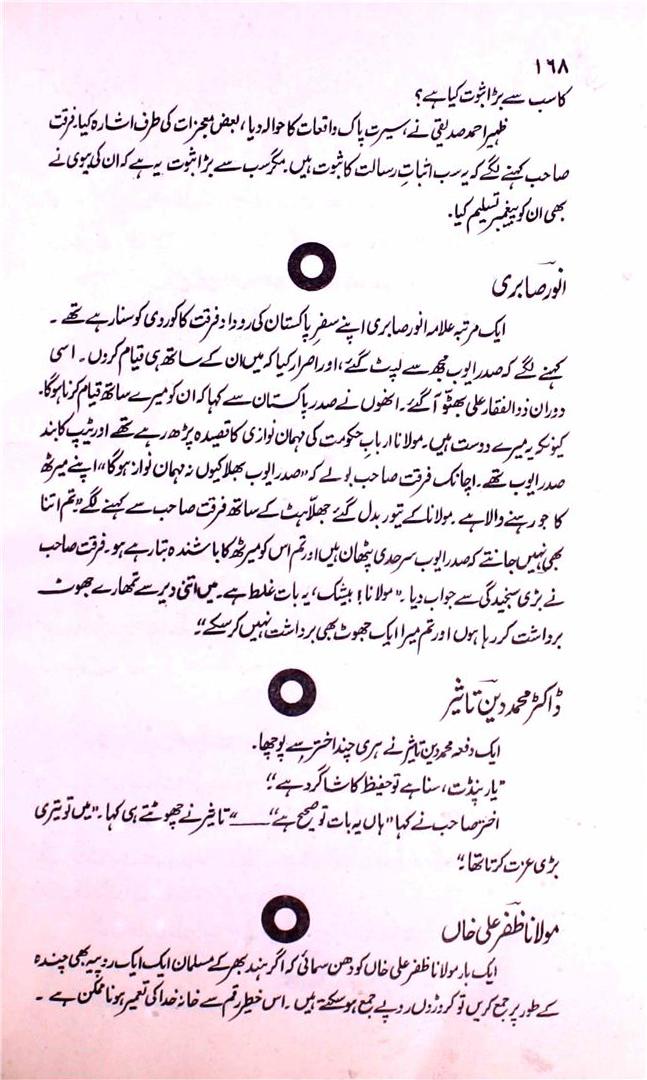 ۱۶۸
کا سب سے بڑا ثبوت کیا ہے؟
ظہیر احمد صدیقی نے، سیرتِ پاک واقعات کا حوالہ دیا، بعض معجزات کی طرف اشارہ کیا، فرقت
صاحب کہنے لگے کہ یہ سب اثباتِ رسالت کا ثبوت ہیں۔ مگر سب سے بڑا ثبوت یہ ہے کہ ان کی بیوی نے
بھی ان کو پیغمبر تسلیم کیا۔
انور صابری
ایک مرتبہ علامہ انور صابری اپنے سفرِ پاکستان کی روداد فرقت کاکوروی کو سنا رہے تھے ۔
کہنے لگے کہ صدر ایوب مجھ سے لپٹ گئے، اور اصرار کیا کہ میں ان کے ساتھ ہی قیام کروں۔ اسی
دوران ذوالفقار علی بھٹو آگئے۔ انھوں نے صدر پاکستان سے کہا کہ ان کو میرے ساتھ قیام کرنا ہوگا۔
کیونکہ یہ میرے دوست ہیں۔ مولانا اربابِ حکومت کی مہمان نوازی کا قصیدہ پڑھ رہے تھے اور ٹیپ کا بند
صدر ایوب تھے۔ اچانک فرقت صاحب بولے کہ "صدر ایوب بھلا کیوں نہ مہمان نواز ہوگا" اپنے میرٹھ
کا جو رہنے والا ہے۔ مولانا کے تیور بدل گئے جھلاہٹ کے ساتھ فرقت صاحب سے کہنے لگے "تم اتنا
بھی نہیں جانتے کہ صدر ایوب سرحدی پٹھان ہیں اور تم اس کو میرٹھ کا باشندہ بتا رہے ہو۔ فرقت صاحب
نے بڑی سنجیدگی سے جواب دیا۔ "مولانا! بیشک، یہ بات غلط ہے۔ میں اتنی دیر سے تمھارے جھوٹ
برداشت کر رہا ہوں اور تم میرا ایک جھوٹ بھی برداشت نہیں کر سکے"۔
ڈاکٹر محمد دین تاثیر
ایک دفعہ محمد دین تاثیر نے ہری چند اختر سے پوچھا۔
"یار پنڈت، سنا ہے تو حفیظ کا شاگرد ہے"؛
اختر صاحب نے کہا "ہاں یہ بات تو صحیح ہے" ــــ "تاثیر نے چھوٹتے ہی کہا۔ "میں تو تیری
بڑی عزت کرتا تھا۔"
مولانا ظفر علی خاں
ایک بار مولانا ظفر علی خاں کو دھن سمائی کہ اگر ہند بھر کے مسلمان ایک ایک روپیہ بھی چندہ
کے طور پر جمع کریں تو کروڑوں روپے جمع ہو سکتے ہیں۔ اس خطیر رقم سے خانہ خدا کی تعمیر ہونا ممکن ہے ۔